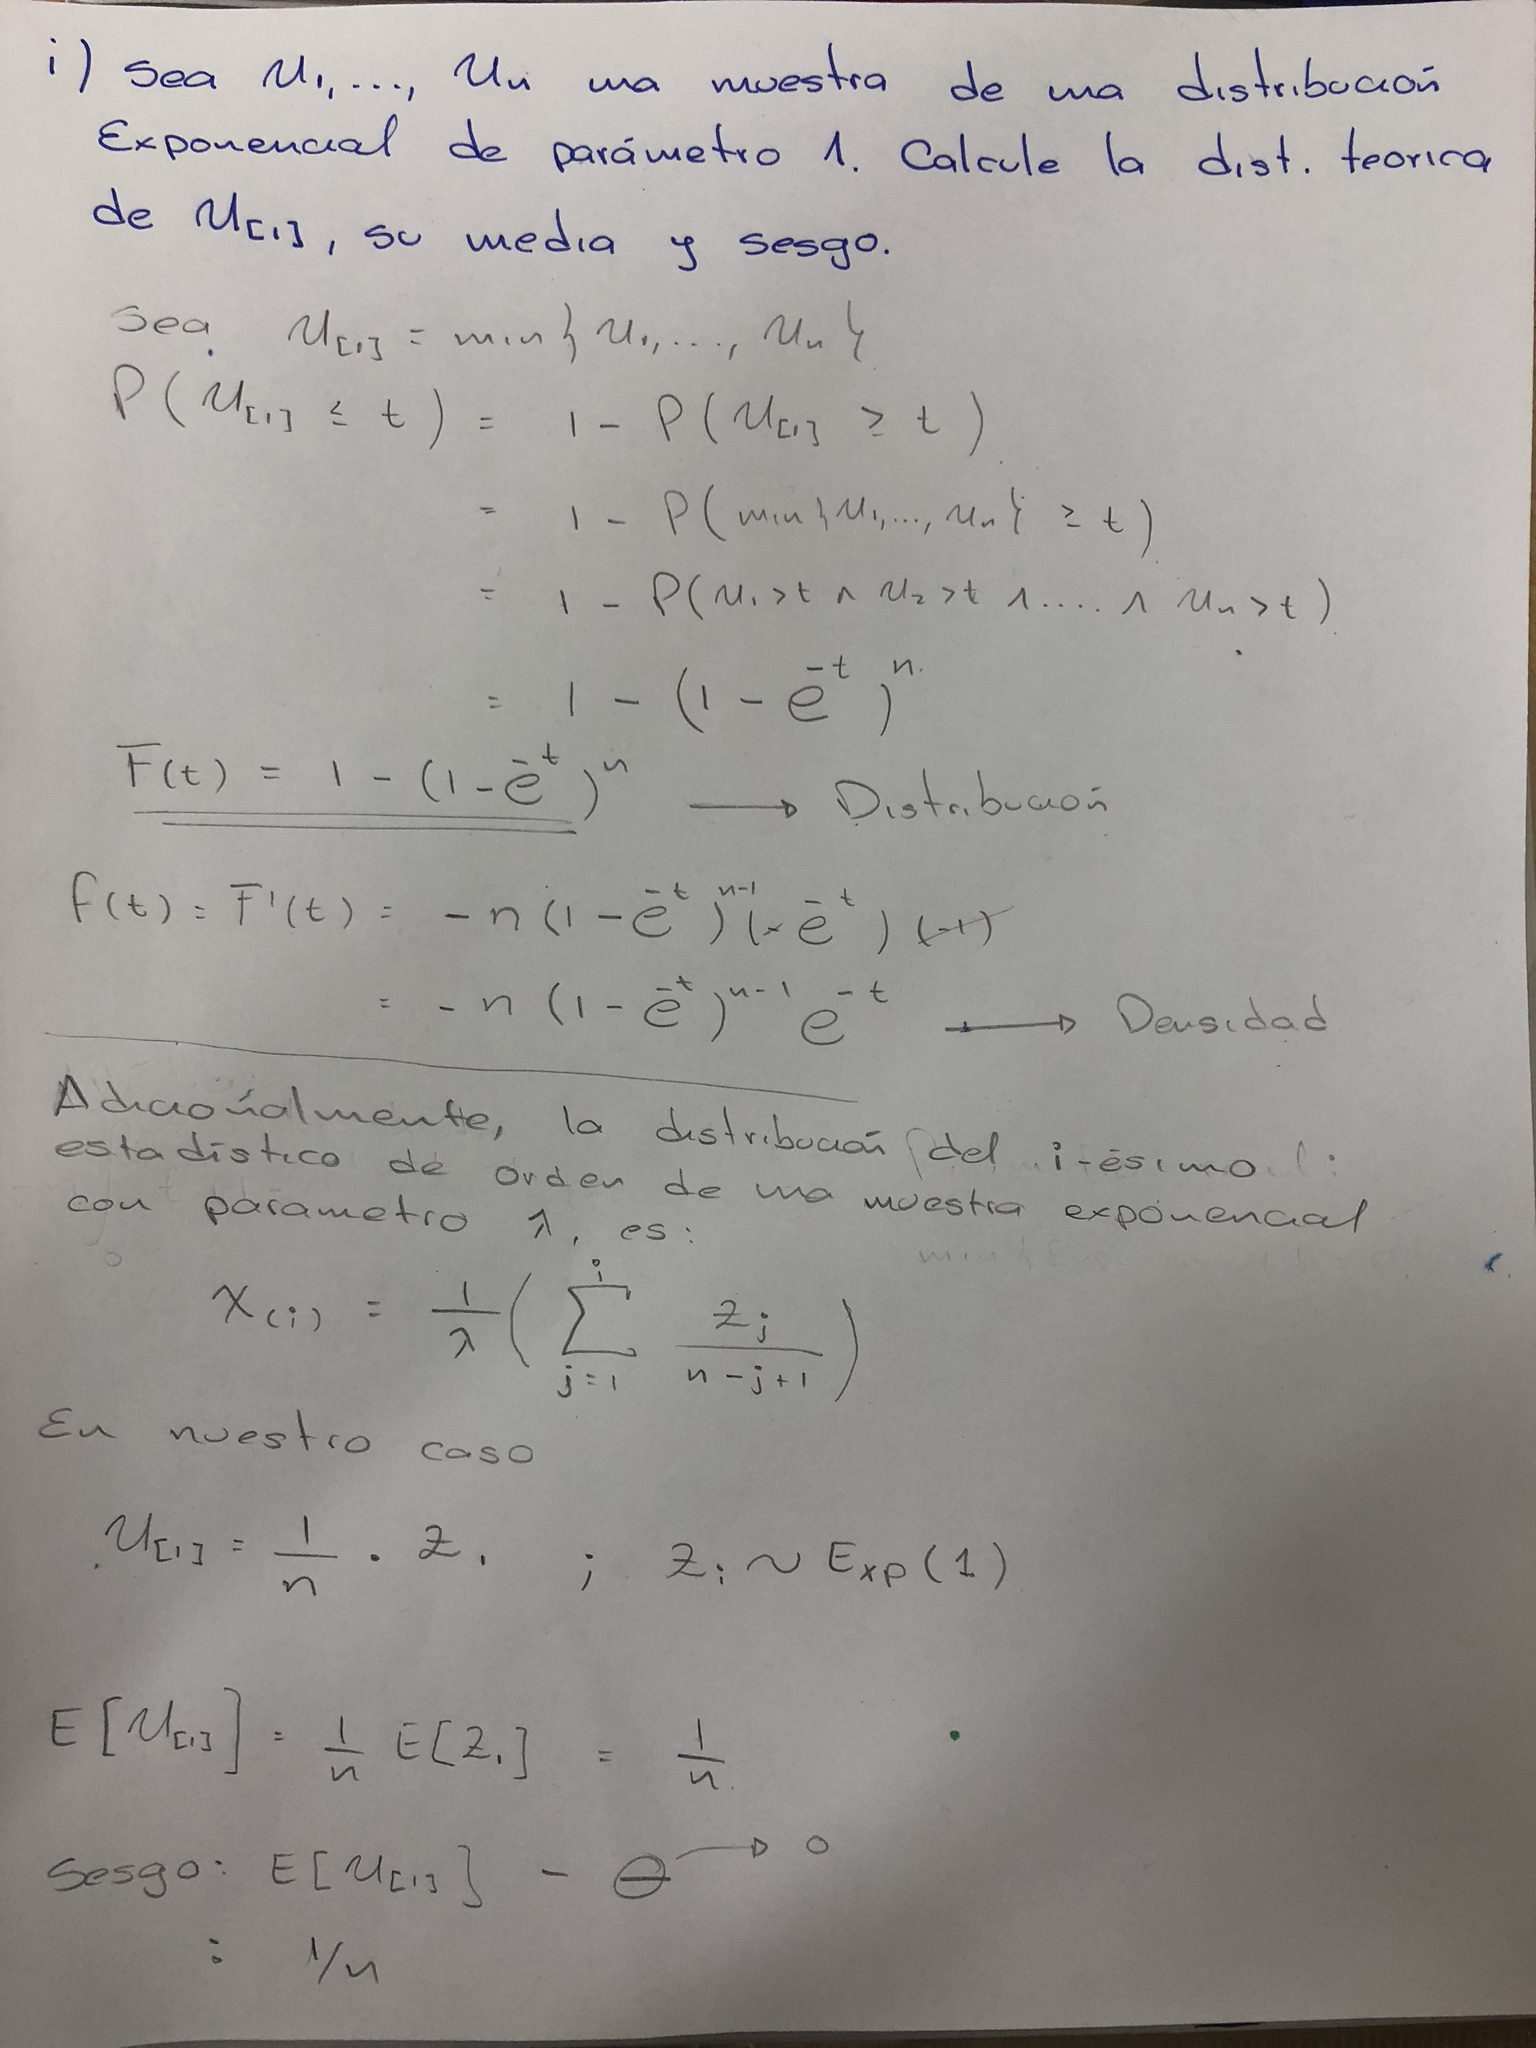 i) Sea U1,..., Un una muestra de una distribución
Exponencial de parámetro 1. Calcule la dist. teorica
de U[1], su media y sesgo.
Sea U[1] = min{U1,..., Un}
P(U[1] ≤ t) = 1 - P(U[1] ≥ t)
= 1 - P(min{U1,..., Un} ≥ t)
= 1 - P(U1>t ∧ U2>t ∧ .... ∧ Un>t)
= 1 - (1 - e^-t)^n
F(t) = 1 - (1 - e^-t)^n → Distribución
f(t) = F'(t) = -n(1 - e^-t)^n-1 (-e^-t)(-1)
= -n(1 - e^-t)^n-1 e^-t → Densidad
Adicionalmente, la distribución del i-ésimo
estadístico de orden de una muestra exponencial
con parametro λ, es:
X(i) = 1/λ (∑_{j=1}^{i} Zj/(n-j+1))
En nuestro caso
U[1] = 1/n · Z1 ; Zi ~ Exp(1)
E[U[1]] = 1/n E[Z1] = 1/n
Sesgo: E[U[1]] - θ → 0
: 1/n